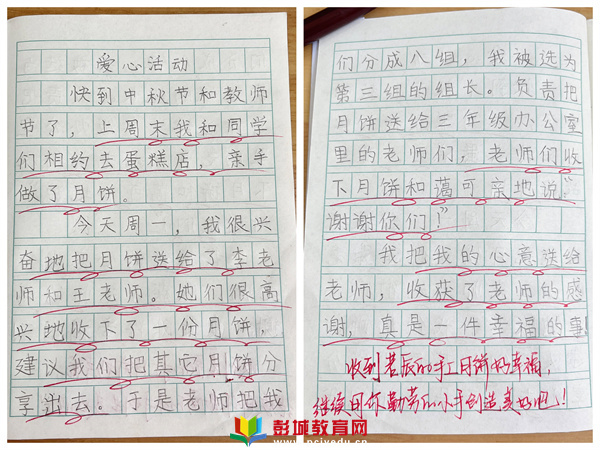 爱心活动
快到中秋节和教师
节了，上周末我和同学
们相约去蛋糕店，亲手
做了月饼。
今天周一，我很兴
奋地把月饼送给了李老
师和王老师。她们很高
兴地收下了一份月饼，
建议我们把其它月饼分
享出去。于是老师把我
们分成八组，我被选为
第三组的组长。负责把
月饼送给三年级办公室
里的老师们，老师们收
下月饼和蔼可亲地说：“
谢谢你们！”
我把我的心意送给
老师，收获了老师的感
谢，真是一件幸福的事
收到若辰的手工月饼好幸福，
继续用你勤劳的小手创造美好吧！
彭城教育网